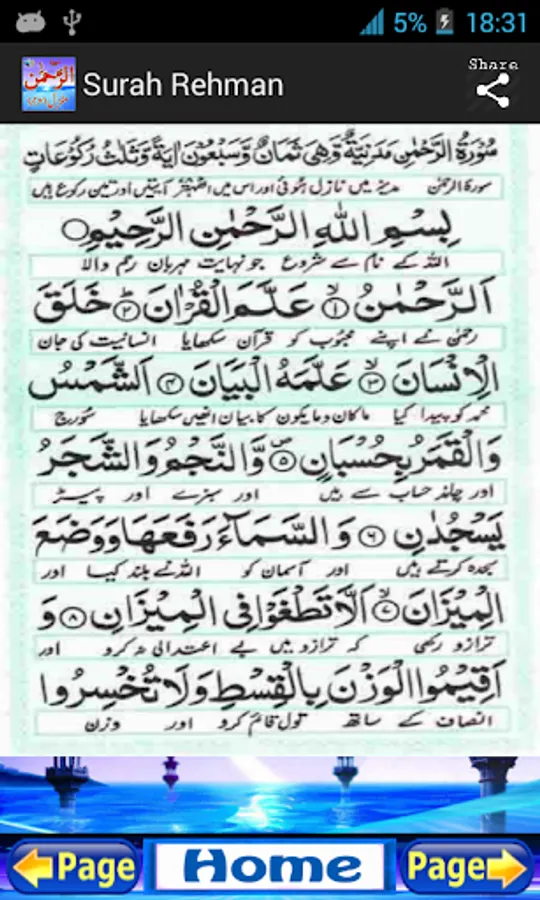 5% 18:31
Surah Rehman
Share
سُوْرَةُ الرَّحْمٰنِ مَدَنِيَّةٌ وَّهِيَ ثَمَانٌ وَّسَبْعُوْنَ اٰيَةً وَّثَلٰثُ رُكُوْعَاتٍ
سورۃ الرحمٰن مدینہ میں نازل ہوئی اور اس میں اٹھہتر آیتیں اور تین رکوع ہیں
بِسْمِ اللّٰهِ الرَّحْمٰنِ الرَّحِيْمِ
اللہ کے نام سے شروع جو نہایت مہربان رحم والا
اَلرَّحْمٰنُ ۙ﴿۱﴾ عَلَّمَ الْقُرْاٰنَ ؕ﴿۲﴾ خَلَقَ
رحمٰن نے اپنے محبوب کو قرآن سکھایا انسانیت کی جان
الْاِنْسَانَ ۙ﴿۳﴾ عَلَّمَهُ الْبَيَانَ ﴿۴﴾ اَلشَّمْسُ
محمد کو پیدا کیا ماکان ومایکون کا بیان انھیں سکھایا سورج
وَالْقَمَرُ بِحُسْبَانٍ ﴿۵﴾ وَّالنَّجْمُ وَالشَّجَرُ
اور چاند حساب سے ہیں اور سبزے اور پیڑ
يَسْجُدٰنِ ﴿۶﴾ وَالسَّمَآءَ رَفَعَهَا وَوَضَعَ
سجدہ کرتے ہیں اور آسمان کو اللہ نے بلند کیا اور
الْمِيْزَانَ ۙ﴿۷﴾ اَلَّا تَطْغَوْا فِي الْمِيْزَانِ ﴿۸﴾ وَ
ترازو رکھی کہ ترازو میں بے اعتدالی نہ کرو اور
اَقِيْمُوا الْوَزْنَ بِالْقِسْطِ وَلَا تُخْسِرُوا
انصاف کے ساتھ تول قائم کرو اور وزن
Page Home Page